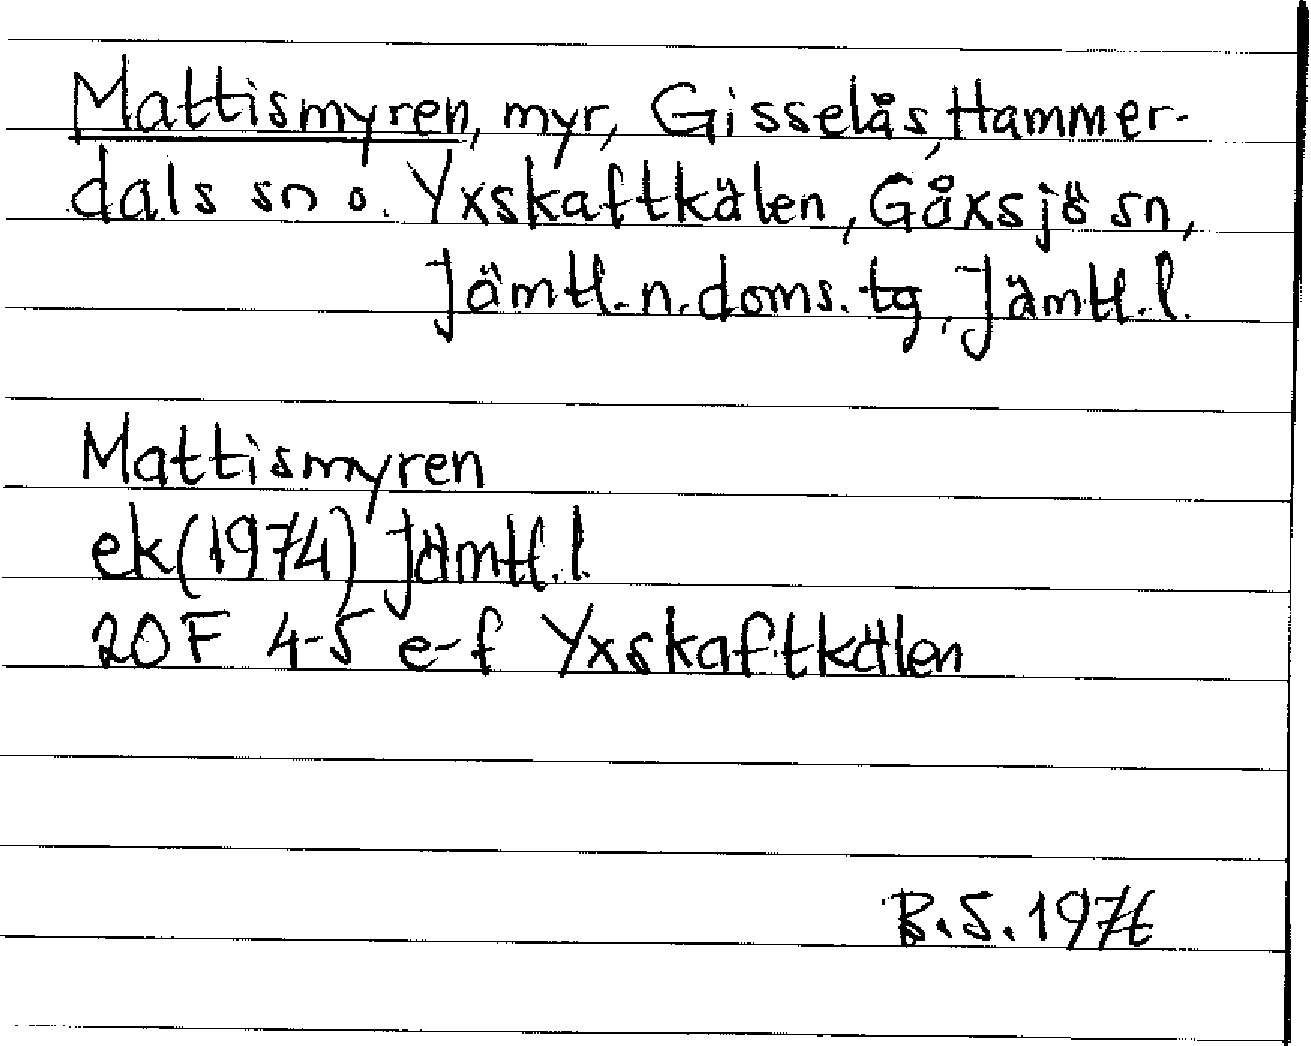 Mattismyren, myr, Gisselås, Hammer-
dals sn o. Yxskaftkälen, Gåxsjö sn,
Jämtl. n. doms. tg, Jämtl. l.
Mattismyren
ek (1974) Jämtl. l.
20F 4-5 e-f Yxskaftkälen
B.S. 1976